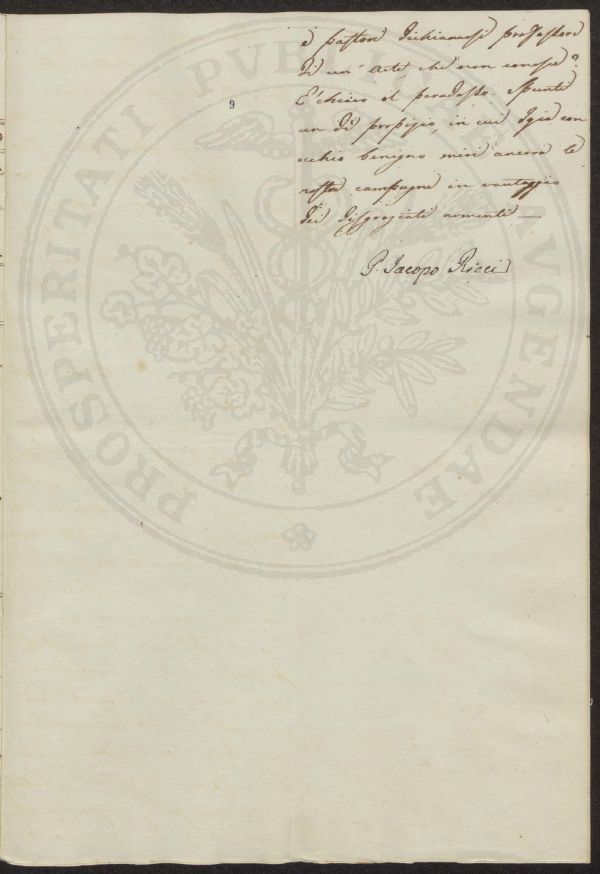 e pastori dichiararsi professori
di un'arte, che non conosce?
E' chiaro il paradosso. Spunti
9
un dì propizio, in cui Igia con
occhio benigno miri ancora le
nostre campagne in vantaggio
dei disgraziati armenti —
P. Jacopo Ricci
PROSPERITATI PVBLICAE AVGENDAE